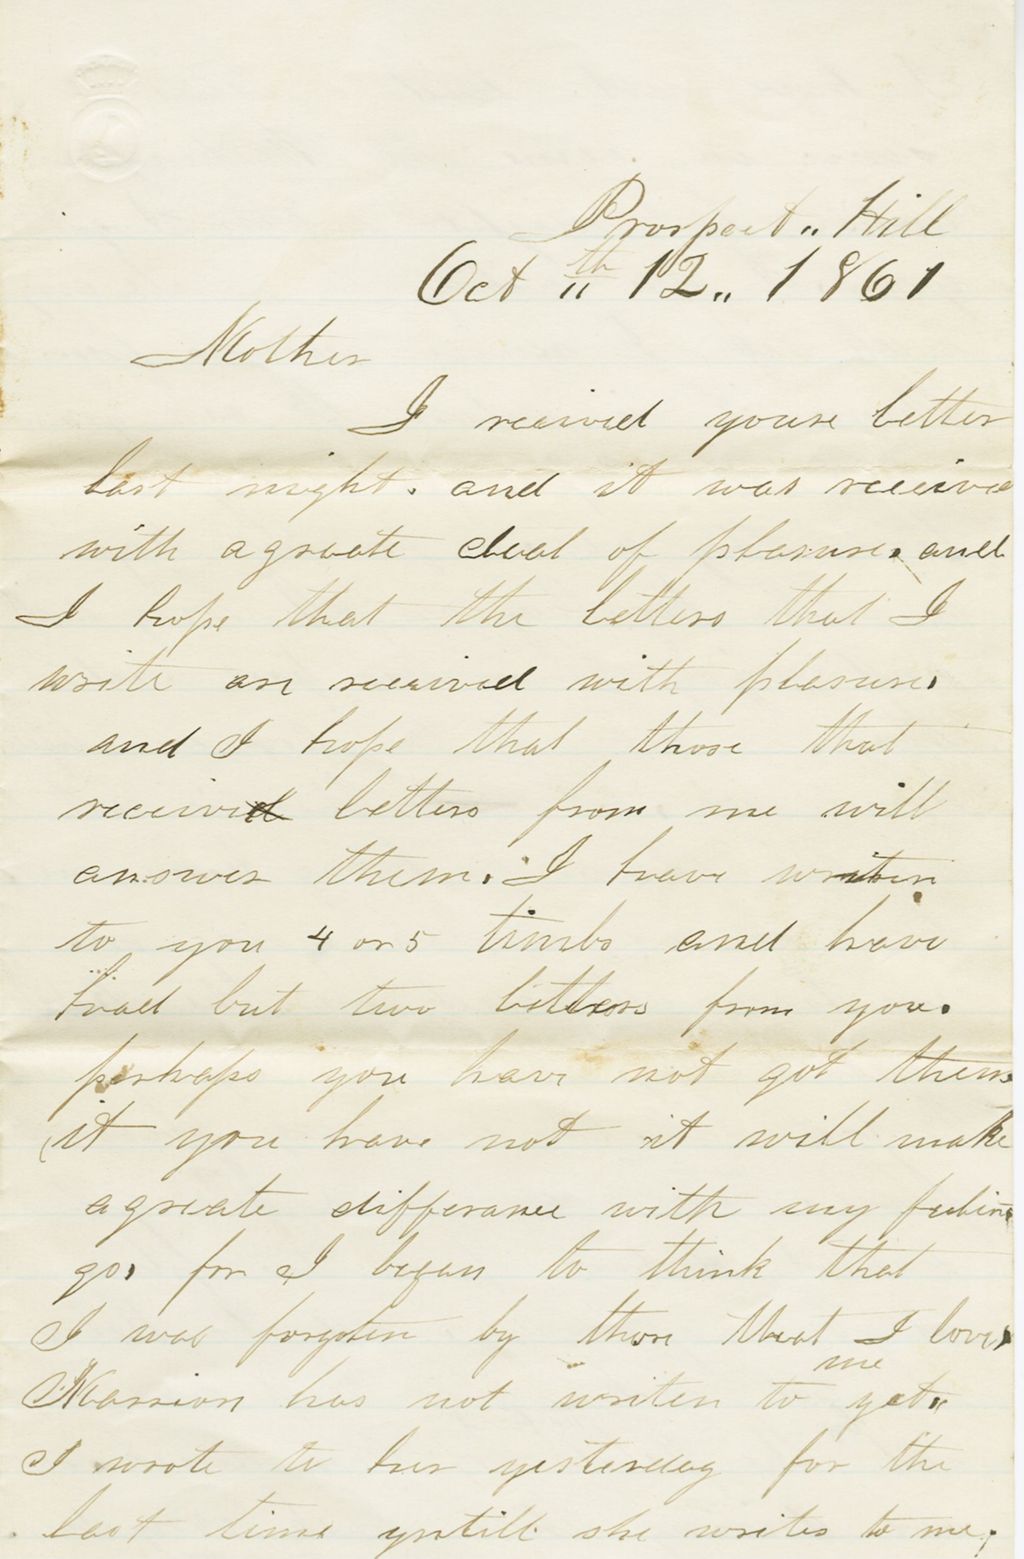 Prospect „ Hill
Oct „th 12 „ 1861
Mother
I received youre letter
last night. and it was received
with a greate deal of pleasure. and
I hope that the letters that I
write are received with pleasure.
and I hope that those that
received letters from me will
answer them. I have writen
to you 4 or 5 times and have
had but two letters from you.
perhaps you have not got them
if you have not it will make
a greate differance with my feelin
gs. for I began to think that
I was forgoten by those that I love.
Marrion has not writen to me yet „
I wrote to her yesterday for the
last time yntill she writes to me.